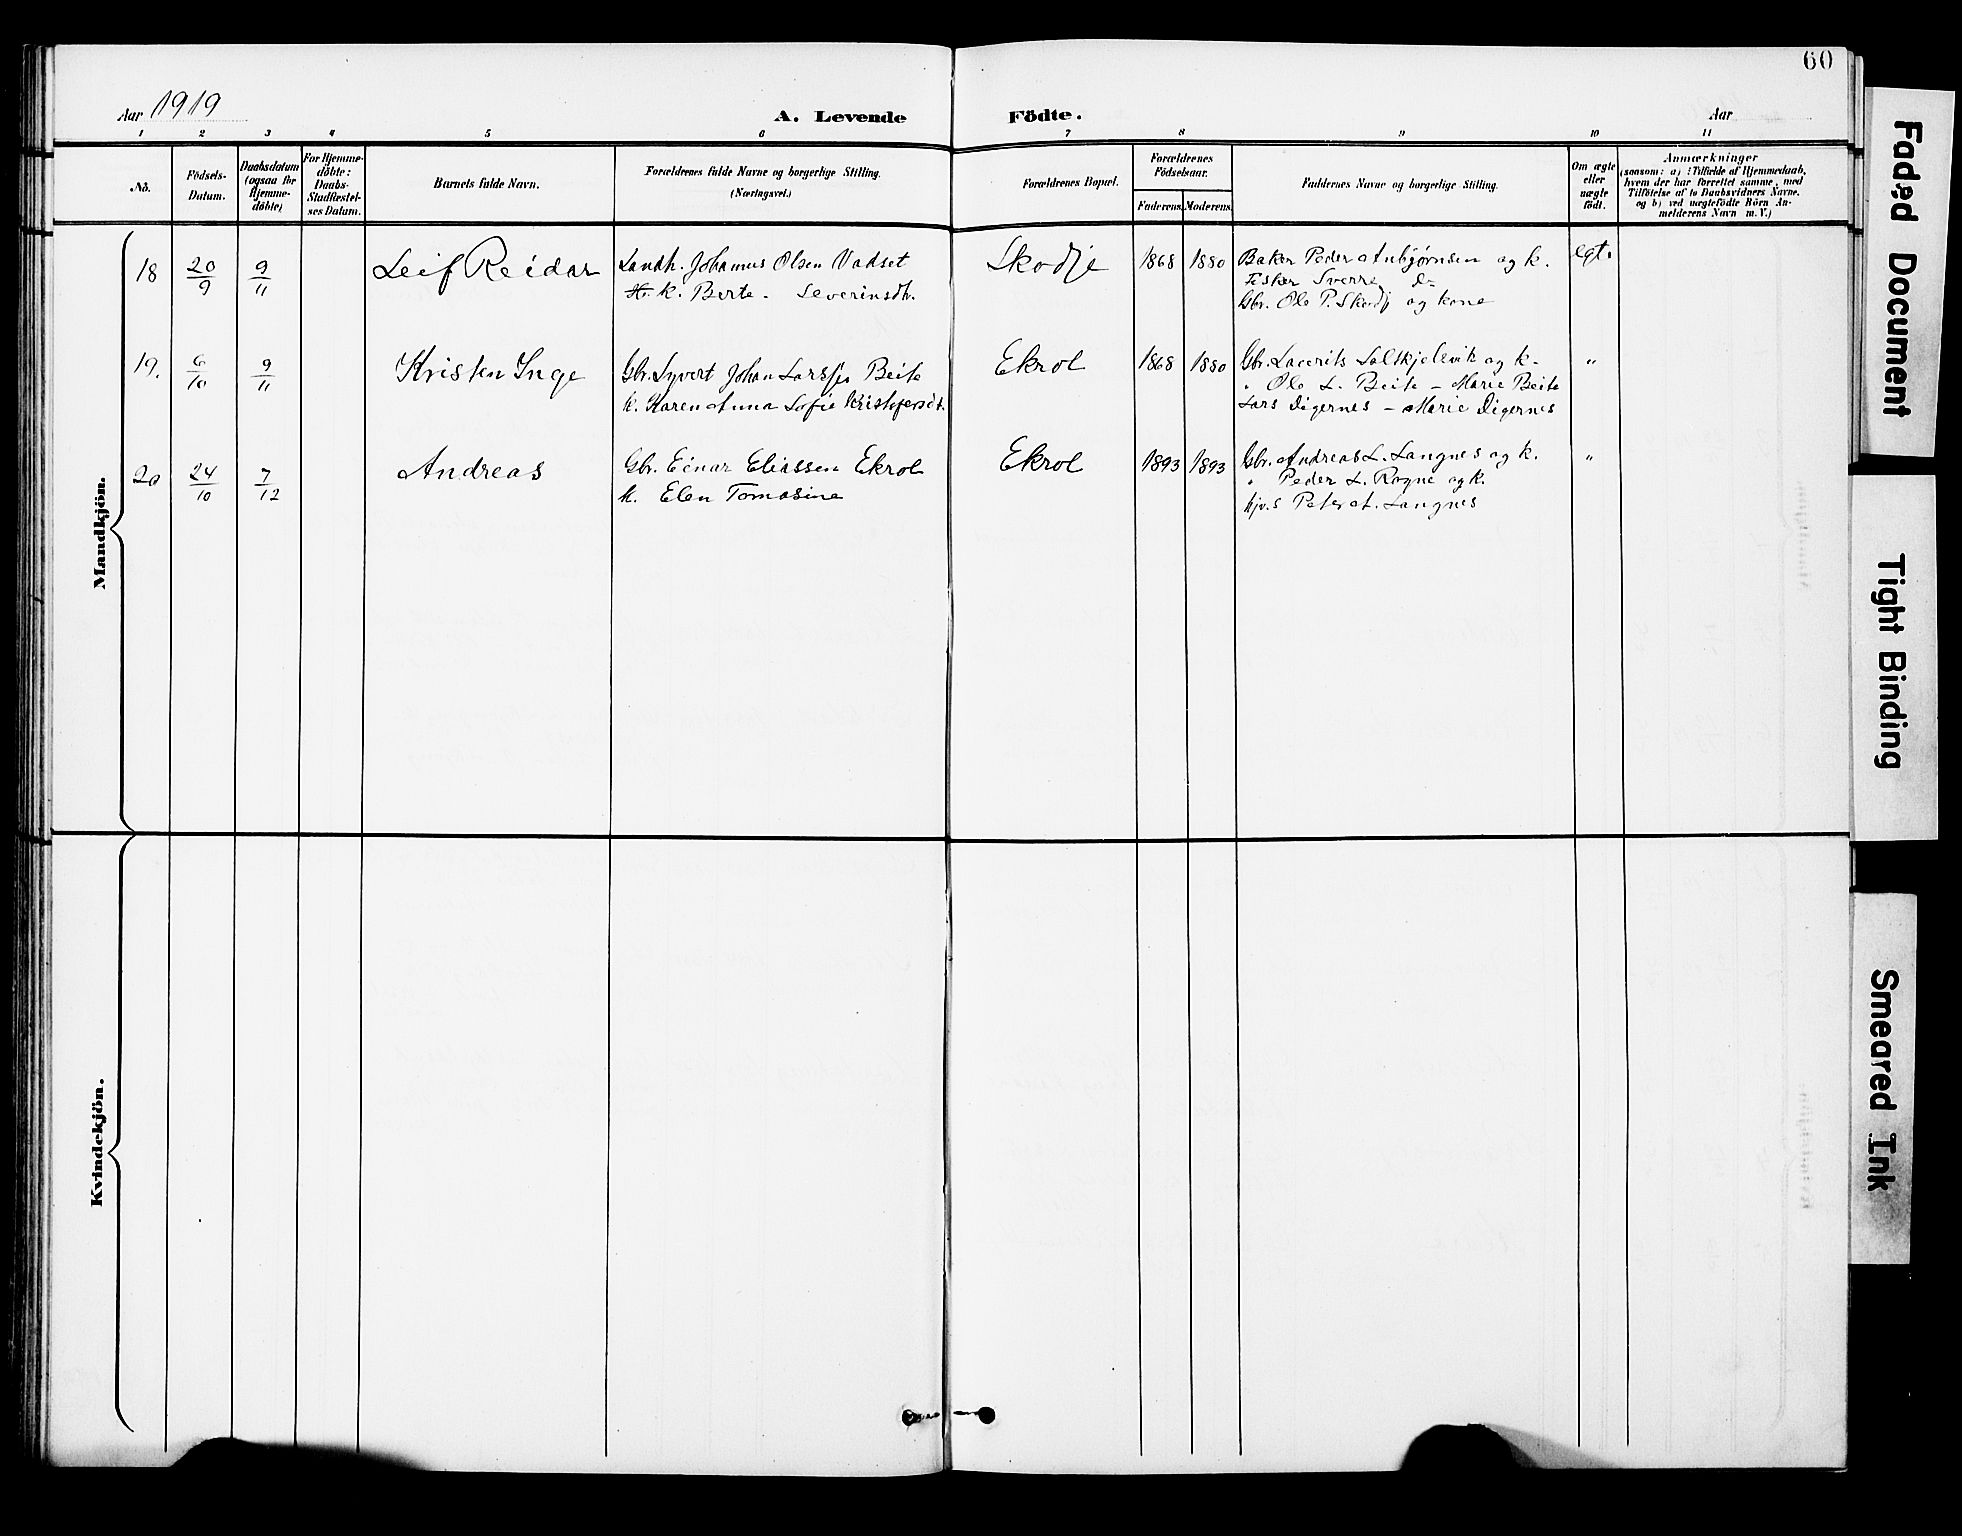 60
Aar 1919
A. Levende Födte.
Aar
1 2 3 4 5 6 7 8 9 10 11
No.
Födsels-Datum.
Daabsdatum (ogsaa for Hjemme-döbte)
For Hjemme-döbte: Daabs-Stadfæstel-ses Datum.
Barnets fulde Navn.
Forældrenes fulde Navne og borgerlige Stilling. (Næringsvei.)
Forældrenes Bopæl.
Forældrenes Födselsaar.
Faderens Moderens
Faddernes Navne og borgerlige Stilling.
Om ægte eller uægte födt.
Anmærkninger
(saasom: a) i Tilfælde af Hjemmedaab,
hvem der har forrettet samme, med
Tilföielse af to Daabsvidners Navne.
og b) ved uægtefödte Börn An-
melderens Navn m. V.)
Mandkjön.
18 20/9 9/11 Leif Reidar Landh. Johannus Olsen Vadset Skodje 1868 1880 Baker Peder Anbjørnsen og k. egt.
k. Berte Severinsdtr. Fisker Sverre do
Gbr. Ole P. Skodj og kone
19. 6/10 9/11 Kristen Inge Gbr. Syvert Johan Larssen Beite Ekrol 1868 1880 Gbr. Laurits Solskjelsvik og k. "
k. Karen Anna Sofie Kristofersdt. " Ole L. Beite - Marie Beite
Lars Digernes - Marie Digernes
20 24/10 7/12 Andreas Gbr. Einar Eliassen Ekrol Ekrol 1893 1893 Gbr. Andreas L. Langnes og k. "
k. Elen Tomasine " Peder L. Rogne og k.
Peter A. Langnes
Kvindekjön.
Faded Document
Tight Binding
Smeared Ink